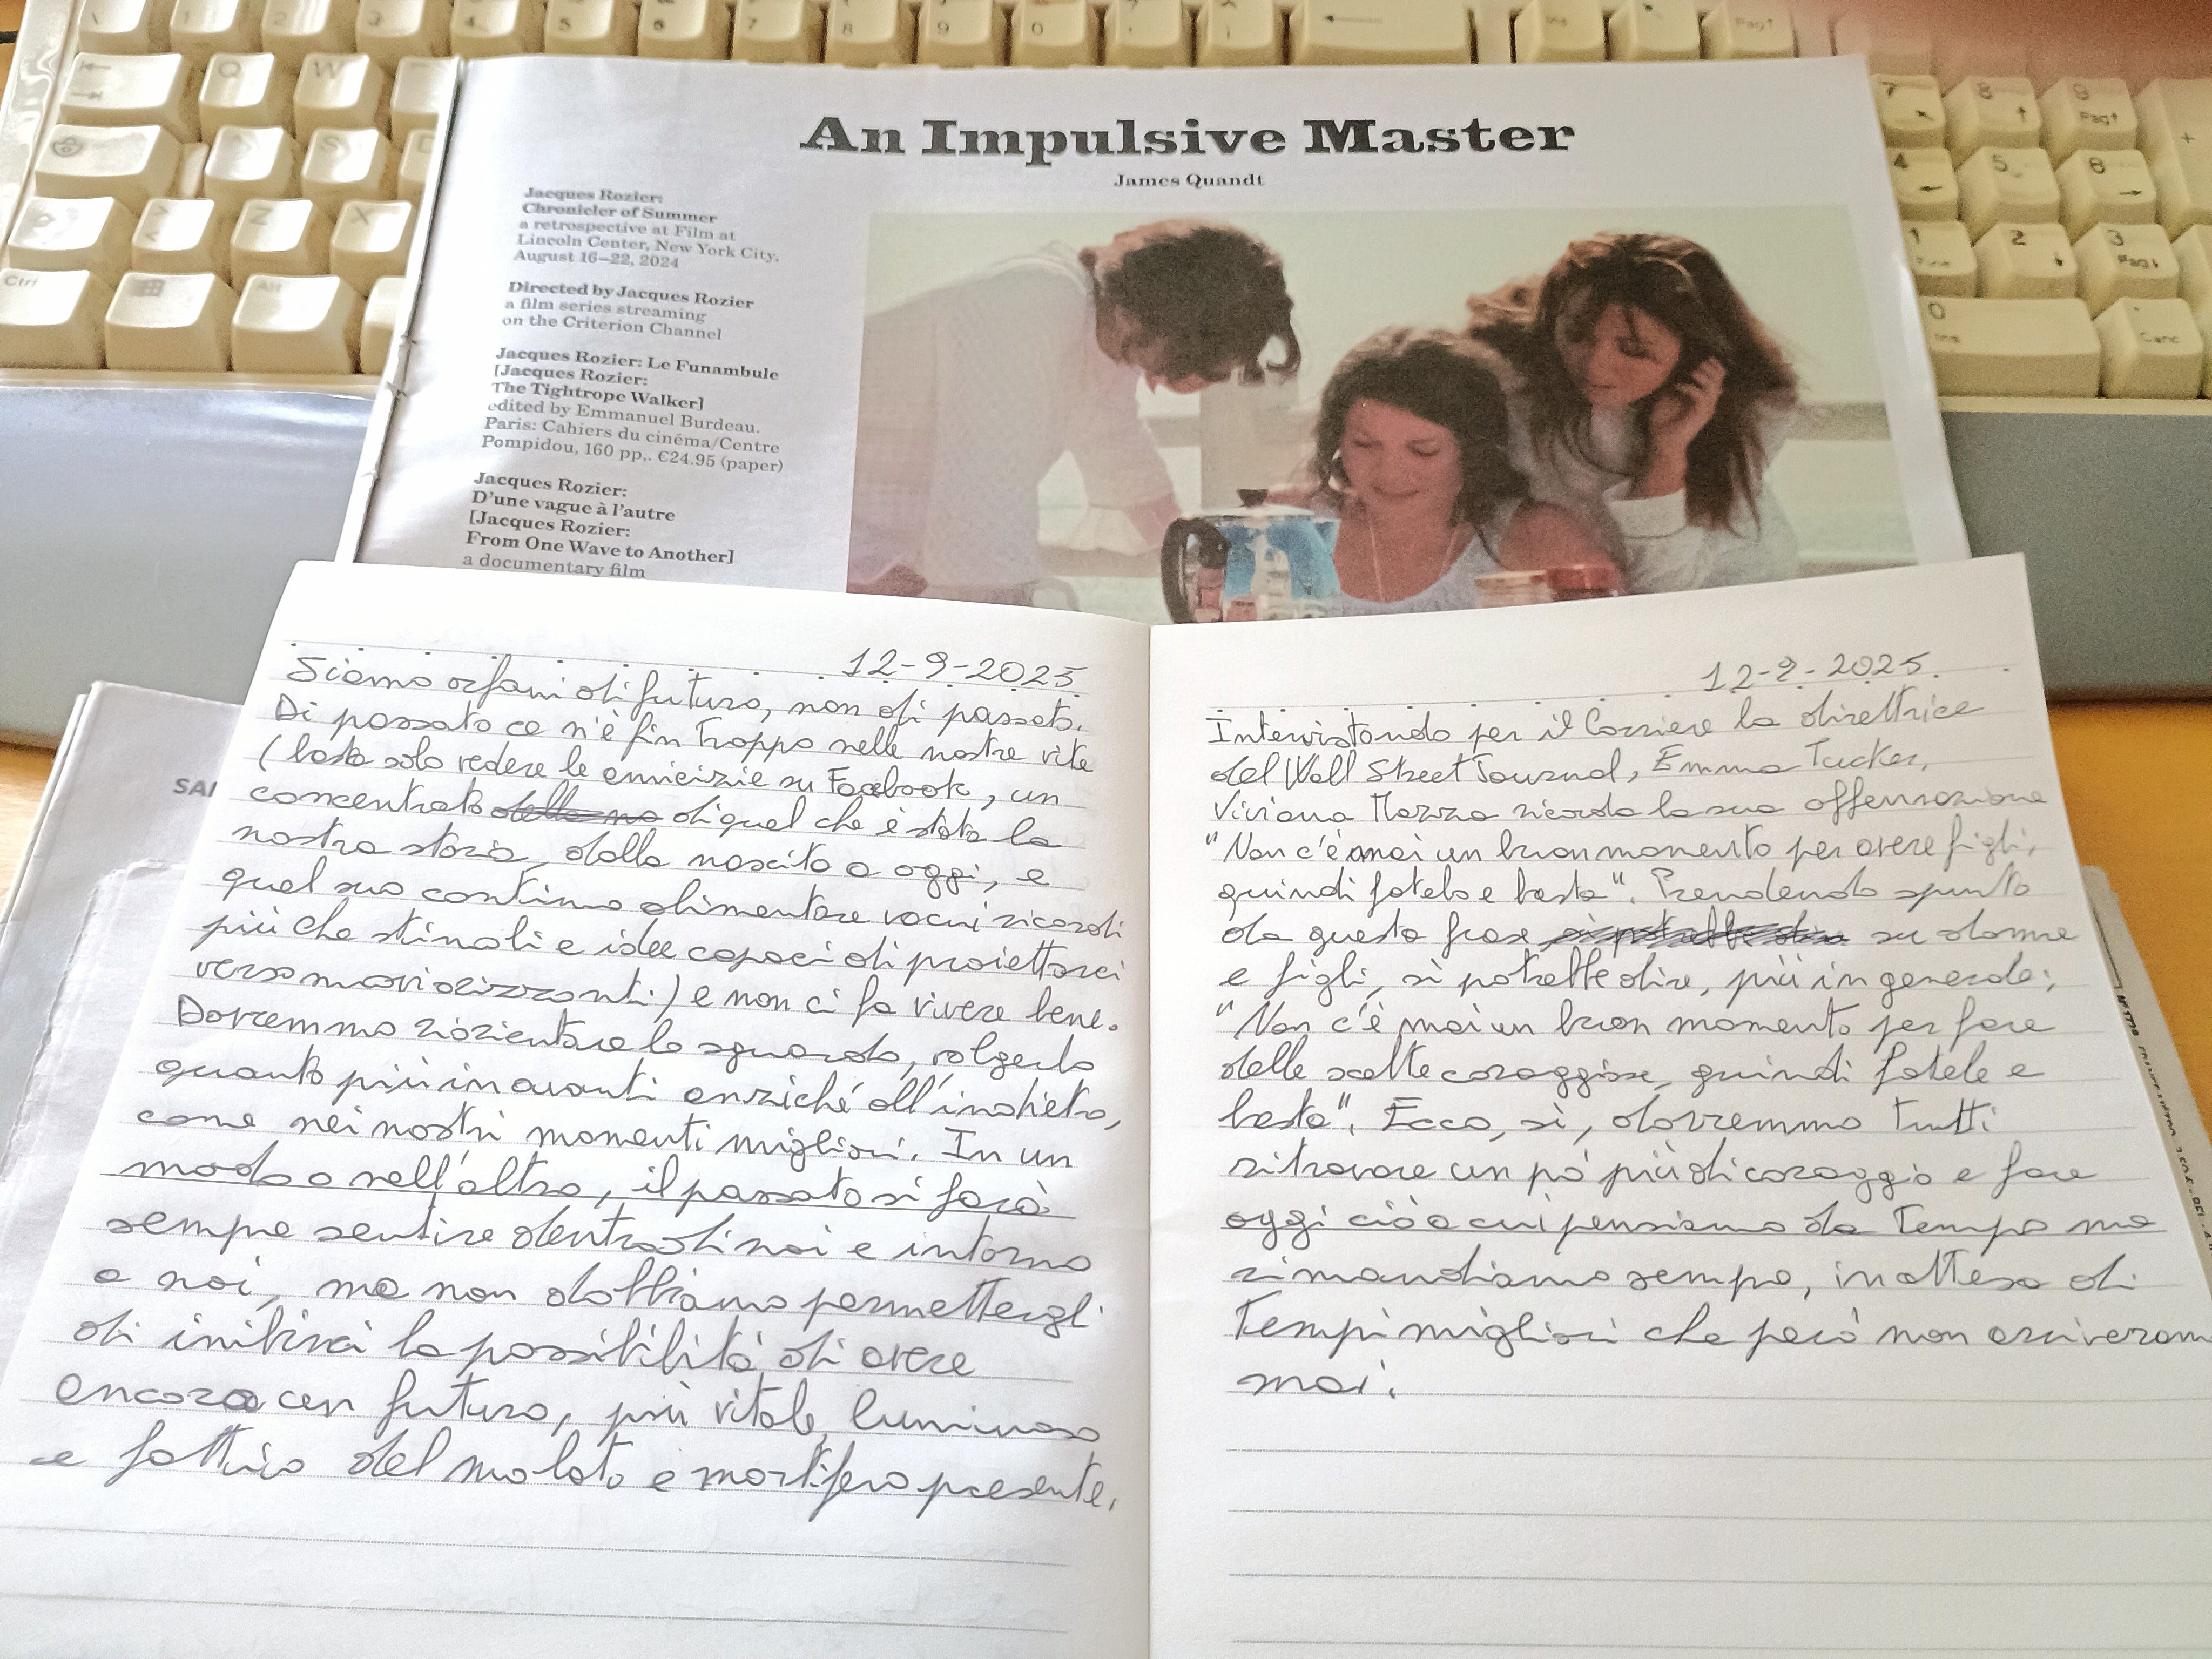 An Impulsive Master
James Quandt
Jacques Rozier:
Chronicler of Summer
a retrospective at Film at
Lincoln Center, New York City,
August 16–22, 2024
Directed by Jacques Rozier
a film series streaming
on the Criterion Channel
Jacques Rozier: Le Funambule
[Jacques Rozier:
The Tightrope Walker]
edited by Emmanuel Burdeau.
Paris: Cahiers du cinéma/Centre
Pompidou, 160 pp,. €24.95 (paper)
Jacques Rozier:
D'une vague à l'autre
[Jacques Rozier:
From One Wave to Another]
a documentary film
12-9-2025
Siamo orfani di futuro, non di passato.
Di passato ce n'è fin troppo nelle nostre vite
(basta solo vedere le amicizie su Facebook, un
concentrato di quel che è stata la
nostra storia, dalla nascita a oggi, e
quel suo continuo alimentare vacui ricordi
più che stimoli e idee capaci di proiettarci
verso nuovi orizzonti) e non ci fa vivere bene.
Dovremmo riorientare lo sguardo, volgerlo
quanto più in avanti anziché all'indietro,
come nei nostri momenti migliori. In un
modo o nell'altro, il passato si farà
sempre sentire dentro di noi e intorno
a noi, ma non dobbiamo permettergli
di inibirci la possibilità di avere
ancora un futuro, più vitale, luminoso
e fattivo del malato e mortifero presente.
12-9-2025.
Intervistando per il Corriere la direttrice
del Wall Street Journal, Emma Tucker,
Viviana Mazza ricorda la sua affermazione
"Non c'è mai un buon momento per avere figli,
quindi fatelo e basta". Prendendo spunto
da questa frase su donne
e figli, si potrebbe dire, più in generale:
"Non c'è mai un buon momento per fare
delle scelte coraggiose, quindi fatele e
basta". Ecco, sì, dovremmo tutti
ritrovare un po' più di coraggio e fare
oggi ciò a cui pensiamo da tempo ma
rimandiamo sempre, in attesa di
tempi migliori che però non arriveranno
mai.
Q
W
Z
X
Ctrl
Alt
Ins
Pag↑
7
8
9
Pag↑
4
5
6
1
2
3
Pag↓
0
Ins
Canc